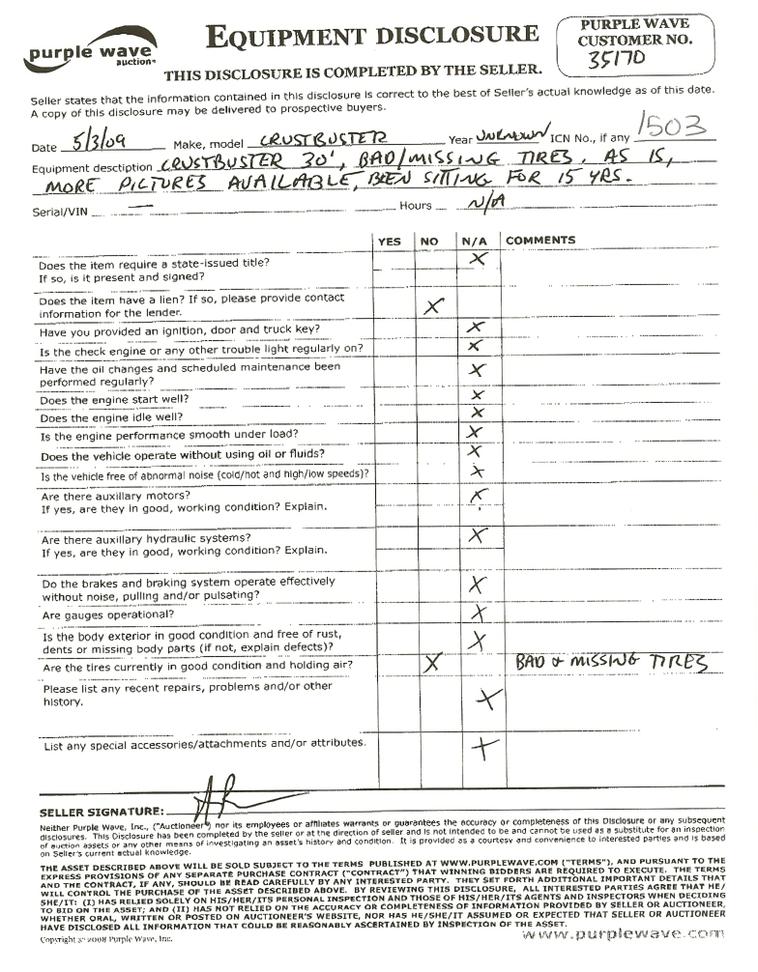 purple wave
auction
EQUIPMENT DISCLOSURE
THIS DISCLOSURE IS COMPLETED BY THE SELLER.
PURPLE WAVE
CUSTOMER NO.
35170
Seller states that the information contained in this disclosure is correct to the best of Seller's actual knowledge as of this date.
A copy of this disclosure may be delivered to prospective buyers.
Date 5/3/09 Make, model CRUSTBUSTER Year UNKNOWN ICN No., if any 1503
Equipment desctiption CRUSTBUSTER 30', BAD/MISSING TIRES. AS IS,
MORE PICTURES AVAILABLE, BEEN SITTING FOR 15 YRS.
Serial/VIN — Hours N/A
YES NO N/A COMMENTS
Does the item require a state-issued title? X
If so, is it present and signed?
Does the item have a lien? If so, please provide contact
information for the lender. X
Have you provided an ignition, door and truck key? X
Is the check engine or any other trouble light regularly on? X
Have the oil changes and scheduled maintenance been
performed regularly? X
Does the engine start well? X
Does the engine idle well? X
Is the engine performance smooth under load? X
Does the vehicle operate without using oil or fluids? X
Is the vehicle free of abnormal noise (cold/hot and high/low speeds)? X
Are there auxillary motors? X
If yes, are they in good, working condition? Explain.
Are there auxillary hydraulic systems? X
If yes, are they in good, working condition? Explain.
Do the brakes and braking system operate effectively
without noise, pulling and/or pulsating? X
Are gauges operational? X
Is the body exterior in good condition and free of rust,
dents or missing body parts (if not, explain defects)? X
Are the tires currently in good condition and holding air? X BAD & MISSING TIRES
Please list any recent repairs, problems and/or other
history. X
List any special accessories/attachments and/or attributes. X
SELLER SIGNATURE:
Neither Purple Wave, Inc., ("Auctioneer") nor its employees or affiliates warrants or guarantees the accuracy or completeness of this Disclosure or any subsequent
disclosures. This Disclosure has been completed by the seller or at the direction of seller and is not intended to be and cannot be used as a substitute for an inspection
of auction assets or any other means of investigating an asset's history and condition. It is provided as a courtesy and convenience to interested parties and is based
on Seller's current actual knowledge.
THE ASSET DESCRIBED ABOVE WILL BE SOLD SUBJECT TO THE TERMS PUBLISHED AT WWW.PURPLEWAVE.COM ("TERMS"), AND PURSUANT TO THE
EXPRESS PROVISIONS OF ANY SEPARATE PURCHASE CONTRACT ("CONTRACT") THAT WINNING BIDDERS ARE REQUIRED TO EXECUTE. THE TERMS
AND THE CONTRACT, IF ANY, SHOULD BE READ CAREFULLY BY ANY INTERESTED PARTY. THEY SET FORTH ADDITIONAL IMPORTANT DETAILS THAT
WILL CONTROL THE PURCHASE OF THE ASSET DESCRIBED ABOVE. BY REVIEWING THIS DISCLOSURE, ALL INTERESTED PARTIES AGREE THAT HE/
SHE/IT: (I) HAS RELIED SOLELY ON HIS/HER/ITS PERSONAL INSPECTION AND THOSE OF HIS/HER/ITS AGENTS AND INSPECTORS WHEN DECIDING
TO BID ON THE ASSET; AND (II) HAS NOT RELIED ON THE ACCURACY OR COMPLETENESS OF INFORMATION PROVIDED BY SELLER OR AUCTIONEER,
WHETHER ORAL, WRITTEN OR POSTED ON AUCTIONEER'S WEBSITE, NOR HAS HE/SHE/IT ASSUMED OR EXPECTED THAT SELLER OR AUCTIONEER
HAVE DISCLOSED ALL INFORMATION THAT COULD BE REASONABLY ASCERTAINED BY INSPECTION OF THE ASSET.
Copyright 2008 Purple Wave, Inc.
www.purplewave.com